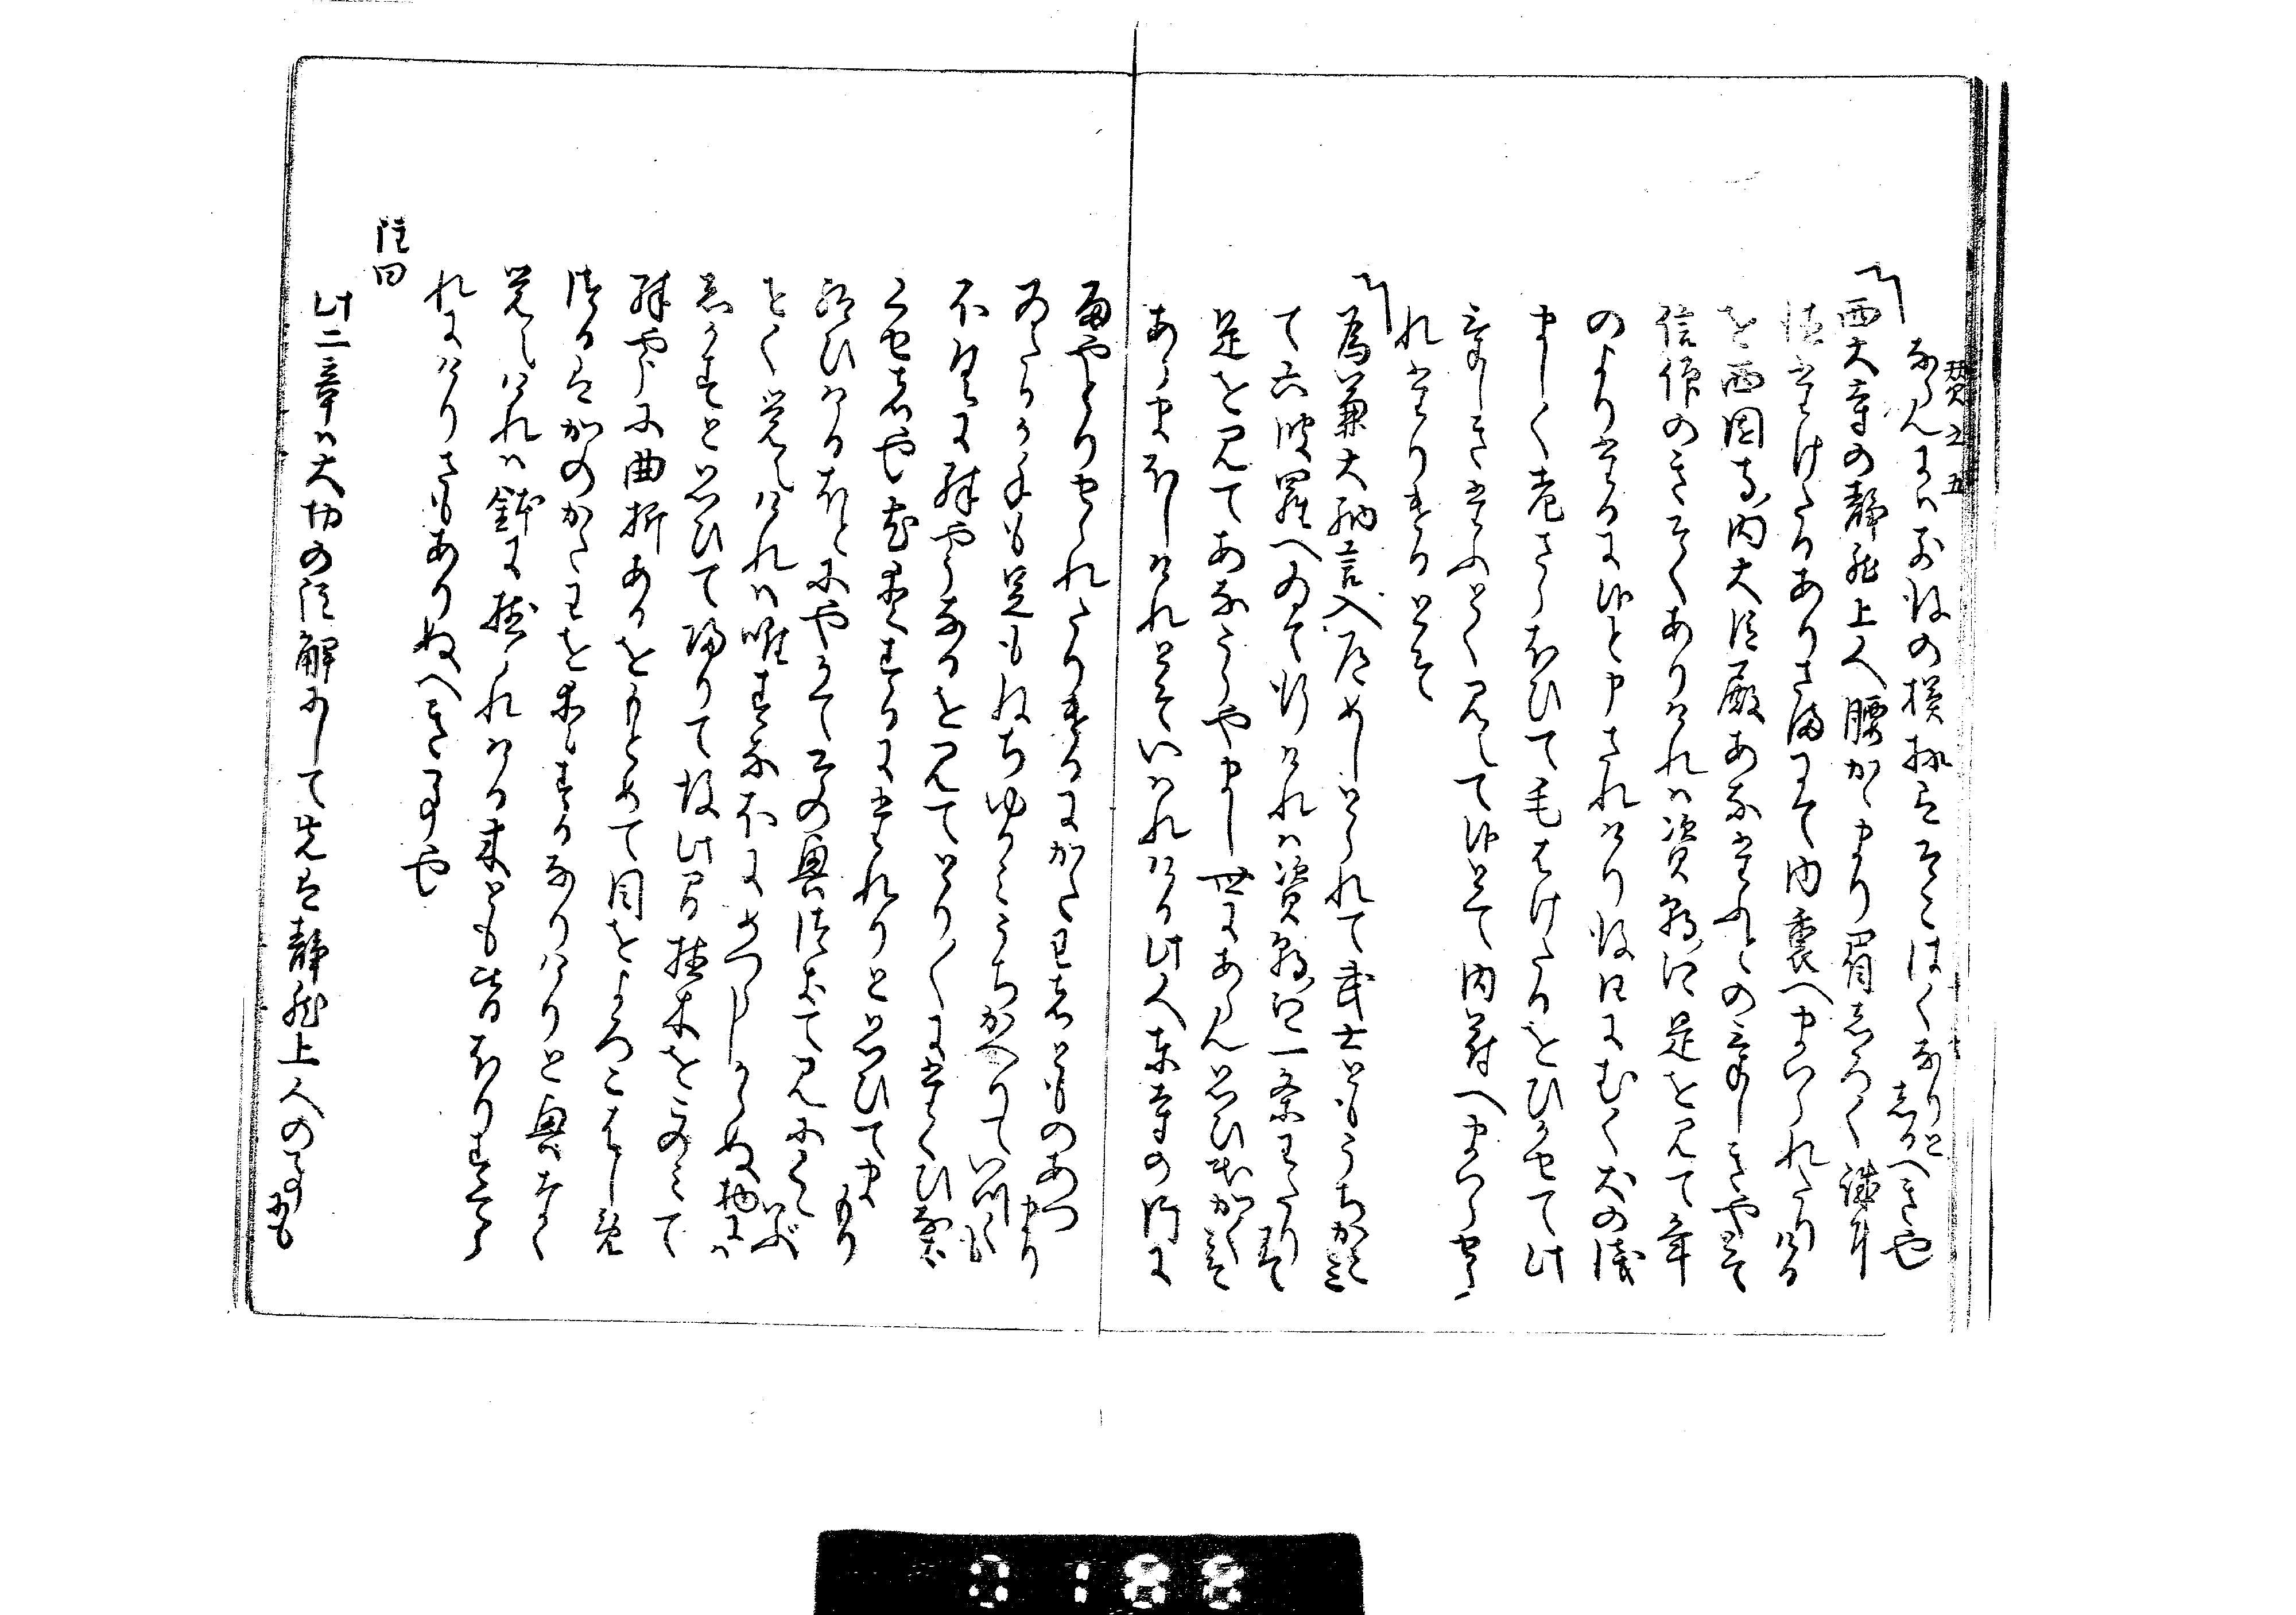 西大寺の静然上人腰かゝまり眉しろく誠に
徳たけたるありさまにて内裏へまいられたりける
を西園寺内大臣殿あなたふとのけしきやとて
信仰のきそくありけれハ資朝卿是を見て年
のよりたるに候と申されけり後日にむく犬の浅
ましく老さらほひて毛はけたるをひかせて此
けしきたふとく見えて候とて内府へまいらせら
れたりけるとそ
為兼大納言入道めしとられて武士ともうちかこみ
て六波羅へゐて行けれハ資朝卿一条わたりにて
是を見てあなうらやまし世にあらん思ひ出かくこそ
あらまほしけれとそいはれける此人東寺の門に
雨やとりせられたりけるにかたはものとものあつまり
ゐたるか手も足もねちゆかみうちかへりていつくも
不具に異やうなるを見てとり〳〵にたくひなき
くせ者也尤愛するにたれりと思ひてまもり
給ひけるほとにやかてその興つきて見にくくいふ
せく覚えけれハ唯すなほにめつらしからぬ物にハ
しかすと思ひて帰りて後此間植木をこのみて
異やうに曲折あるをもとめて目をよろこはしめ
つるはかのかたはを愛するなりけりと興なく
覚えけれハ鉢に植られける木とも皆ほりすてら
れにけりさもありぬへき事や
註曰
此二章ハ大切の註解にして先は静然上人の事にも